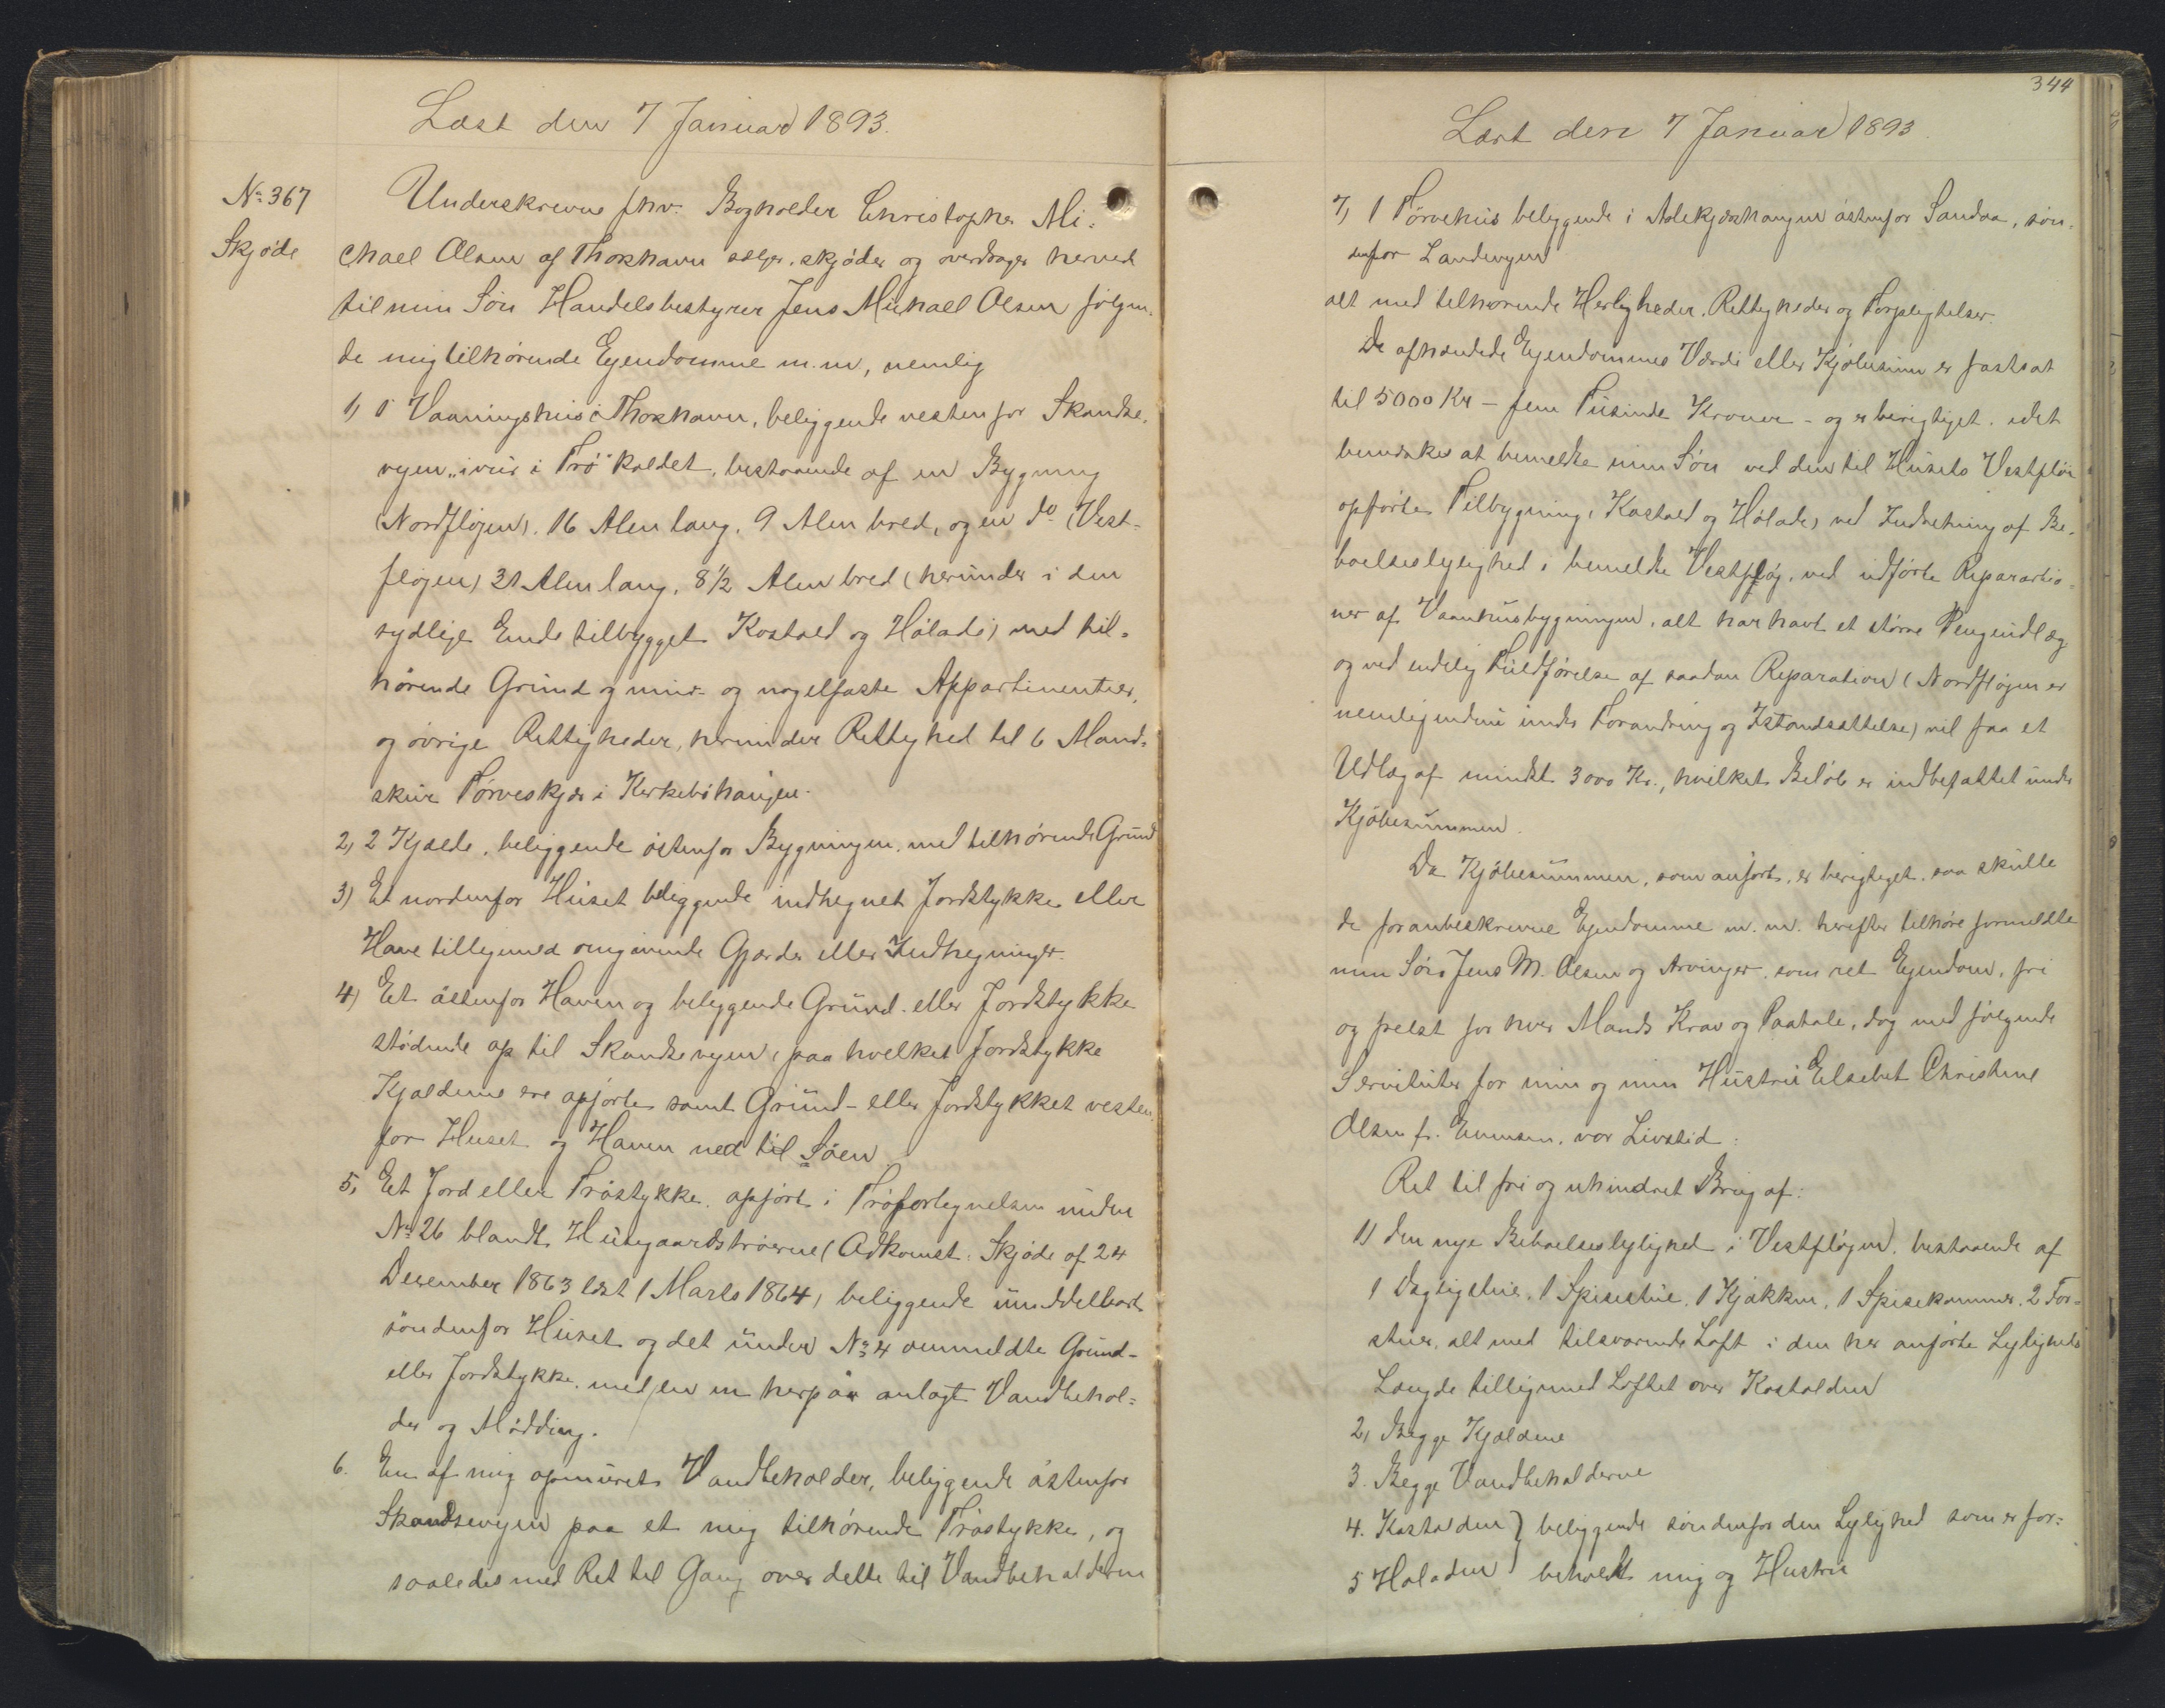 Læst den 7 Januar 1893.
No 367
Skjøde
Underskrevne fhv. Bogholder Christopher Mi-
chael Olsen af Thorshavn sælger, skjøder og overdrager herved
til min Søn Handelsbestyrer Jens Michael Olsen følgen-
de mig tilhørende Ejendomme m.m, nemlig
1) 1 Vaaningshus i Thorshavn, beliggende vestenfor Skandse-
vejen, i Trø" kaldet, bestaaende af en Bygning
(Nordfløjen), 16 Alen lang, 9 Alen bred, og en do (Vest-
fløjen) 31 Alen lang, 8½ Alen bred (herunder i den
sydlige Ende tilbygget Kostald og Hølade) med til-
hørende Grund og mur- og nagelfaste Appertinentier,
og øvrige Rettigheder, herunder Rettighed til 6 Mand-
skur Tørveskjær i Kirkebøhaugen.
2, 2 Kjælde, beliggende østenfor Bygningen, med tilhørende Grund
3) Et nordenfor Huset beliggende indhegnet Jordstykke eller
Have tilligemed omgivende Gjærder eller Indhegninger.
4) Et østenfor Haven og beliggende Grund- eller Jordstykke
stødende op til Skandsevejen, paa hvilket Jordstykke
Kjældene ere opførte samt Grund- eller Jordstykket vesten
for Huset og Haven ned til Søen
5, Et Jord eller Trøstykke, opført i Trøfortegnelsen under
No 26 blandt Husgaardstrøerne (Adkomst: Skjøde af 24
Desember 1863 læst 1 Marts 1864) beliggende umiddelbart
søndenfor Huset og det under No 4 ommeldte Grund-
eller Jordstykke, med en herpaa anlagt Vandbehol-
der og Mødding.
6. En af mig opmuret Vandbeholder, beliggende østenfor
Skandsevejen paa et mig tilhørende Trøstykke, og
saaledes med Ret til Gang over dette til Vandbeholderne
344
Læst den 7 Januar 1893
7, 1 Tørvehus beliggende i østenfor Sandaa, søn-
denfor Landevejen
alt med tilhørende Herligheder, Rettigheder og Forpligtelser.
De afhændede Ejendommes Værdi eller Kjøbesum er fastsat
til 5000 Kr - fem Tusinde Kroner - og er berigtiget, idet
bemærkes at bemeldte min Søn ved den til Husets Vestfløj
opførte Tilbygning, (Kostald og Hølade) ved Indretning af Be-
boelseslejlighed i bemeldte Vestfløj, ved udførte Reparatio-
ner af Vaanhusbygningen, alt har havt et større Pengeudlæg
og ved endelig Fuldførelse af saadan Reparation (Nordfløjen er
nemlig endnu under Forandring og Istandsættelse) vil faa et
Udlæg af mindst 3000 Kr., hvilket Beløb er indbefattet under
Kjøbesummen.
Da Kjøbesummen, som anført, er berigtiget, saa skulle
de foranbeskrevne Ejendomme m.m. herefter tilhøre formeldte
min Søn Jens M. Olsen og Arvinger, som ret Ejendom, fri
og frelst for hver Mands Krav og Paatale, dog med følgende
Servituter for min og min Hustru Elsebet Christine
Olsen f. vor Livstid:
Ret til fri og uhindret Brug af:
1) den nye Beboelseslejlighed i Vestfløjen, bestaaende af
1 Dagligstue, 1 Spisestue, 1 Kjøkken, 1 Spisekammer, 2 For-
stuer, alt med tilsvarende Loft i den her anførte Lejligheds
Længde tilligemed Loftet over Kostalden
2, Begge Kjældene
3. Begge Vandbeholderne
4. Kostalden } beliggende søndenfor den Lejlighed som er for-
5 Høladen } beholdt mig og Hustru